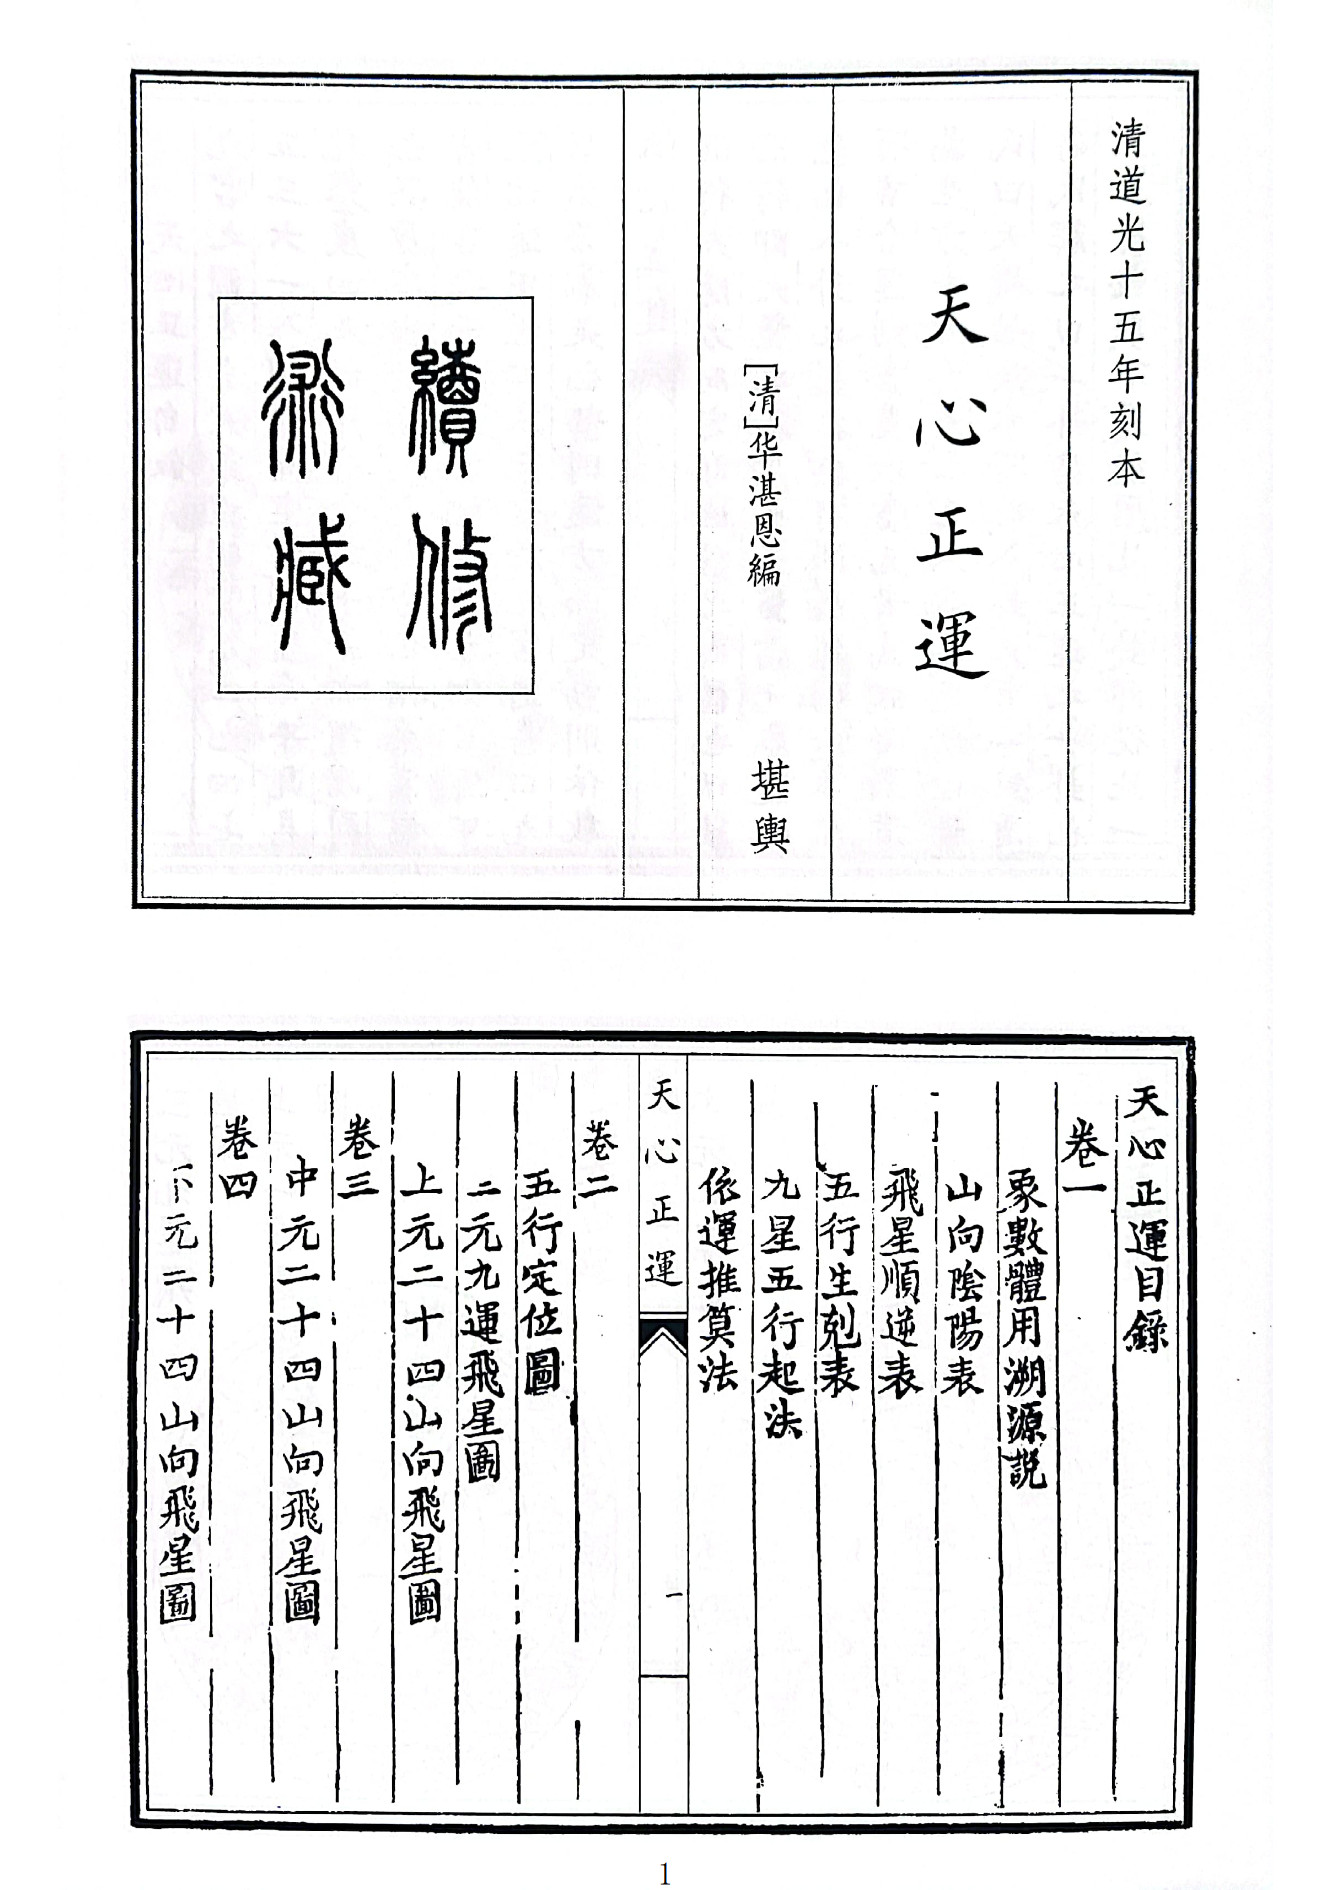 清道光十五年刻本
天心正運
[清]华湛恩編
堪輿
續修
術藏
天心正運目錄
卷一
象數體用溯源說
山向陰陽表
飛星順逆表
五行生剋表
九星五行起法
依運推算法
天心正運
一
卷二
五行定位圖
二元九運飛星圖
上元二十四山向飛星圖
卷三
中元二十四山向飛星圖
卷四
下元二十四山向飛星圖
1